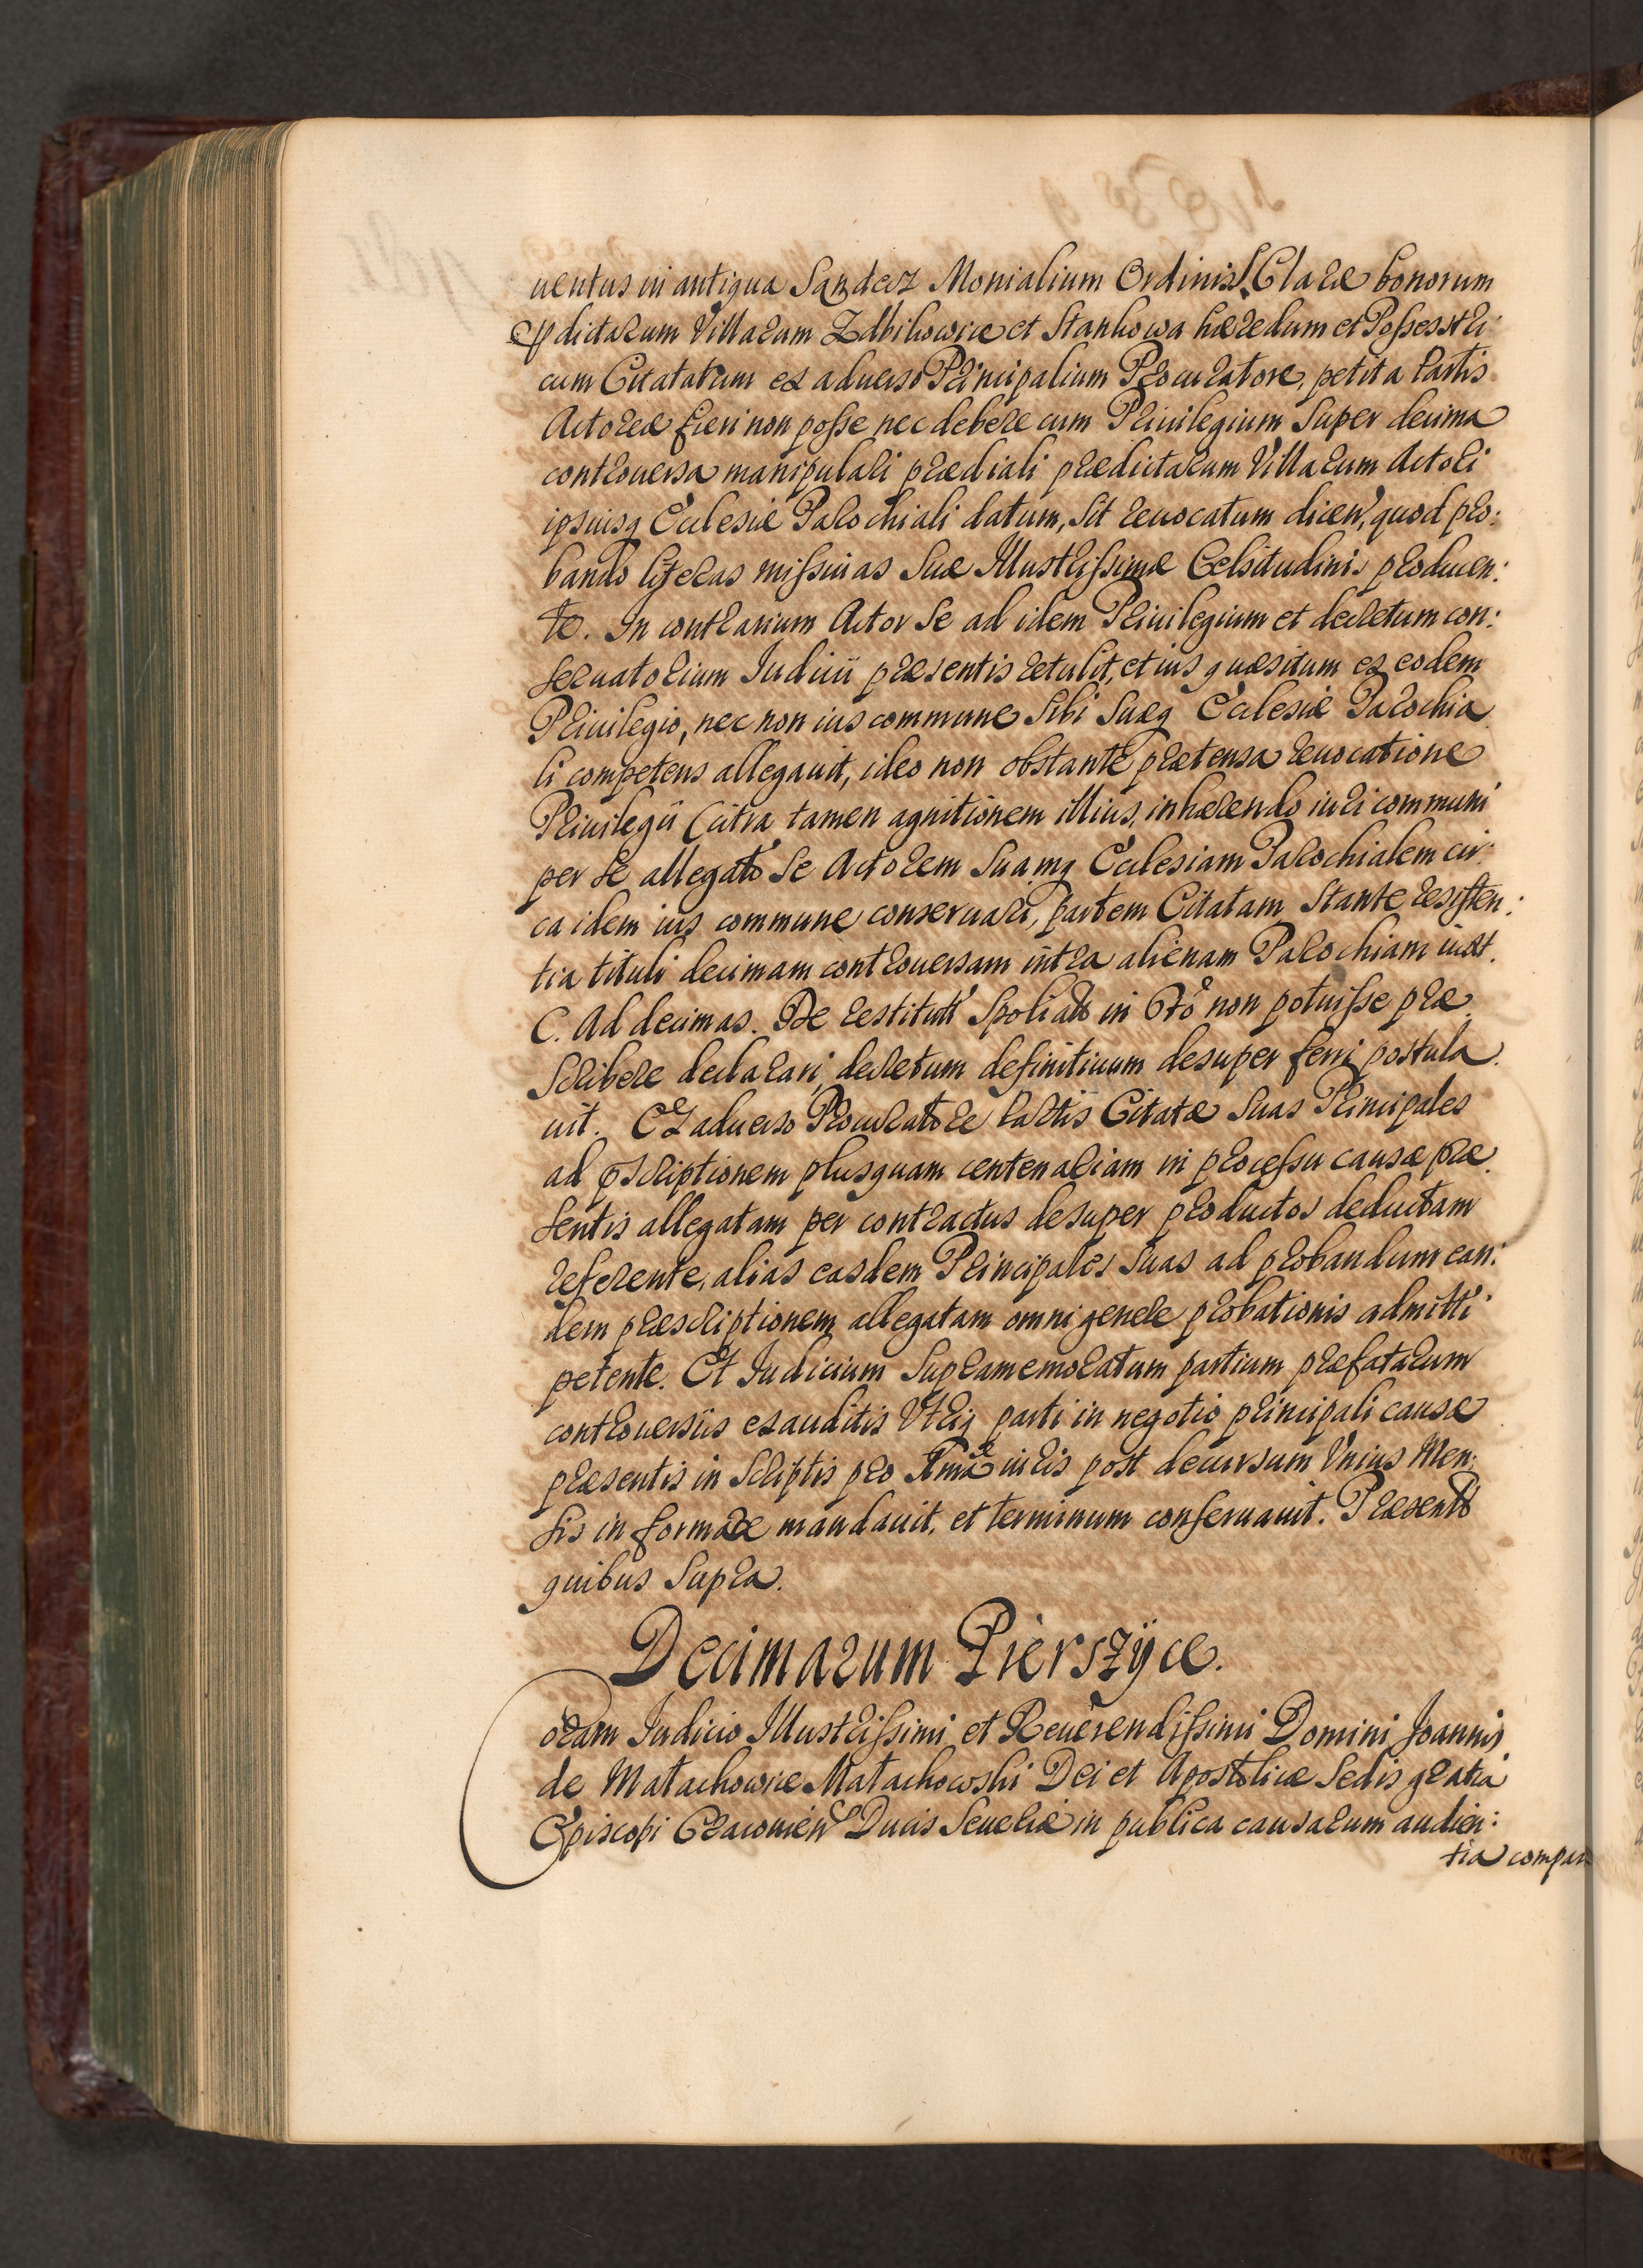 uentus in antiqua Sandecz Monialium Ordinis S. Claræ bonorum
p̄dictarum Villarum Zdbikowice et Stankowa hæredum et Possesstri
cum Citatarum ex aduerso Principalium Procuratore, petita Partis
Actoreæ fieri non posse nec debere cum Priuilegium super decima
controuersa manipulari prædiali prædictarum Villarum Actori
ipsiusq Ecclesiæ Parochiali datum, sit reuocatum dicen, quod pro:
bando literas missiuas Suæ Illustrissimæ Celsitudinis producen:
te. In contrarium Actor se ad idem Priuilegium et decretum con:
seruatorium Iudicii præsentis retulit, et ius quæsitum ex eodem
Priuilegio, nec non ius commune sibi suæq Ecclesiæ Parochia
li competens allegauit, ideo non obstante prætensa reuocatione
Priuilegii (citra tamen agnitionem illius, inhærendo iuri communi
per se allegato se Actorem suamq Ecclesiam Parochialem cir:
ca idem ius commune conseruari, partem Citatam stante resisten:
tia tituli decimam controuersam intra alienam Parochiam iuxt.
C. Ad decimas. De restitut Spoliat in 6to non potuisse præ
scribere declarari, decretum definitiuum desuper ferri postula
uit. Ex aduerso Procuratore Partis Citatæ suas Principales
ad p̄scriptionem plusquam centenariam in processu causæ præ
sentis allegatam per contractus desuper productos deductam
referente, alias easdem Principales suas ad probandum ean:
dem præscriptionem allegatam omni genere probationis admitti
petente. Et Iudicium supramemoratum partium præfatarum
controuersiis exauditis Vtriq parti in negotio principali causæ
præsentis in scriptis pro Amia iuris post decursum Vnius Men:
sis informare mandauit, et terminum conseruauit. Præsentb
quibus supra.
Decimarum Pierszÿce.
oram Iudicio Illustrissimi et Reuerendissimi Domini Joannis
de Małachowice Małachowski Dei et Apostolicæ Sedis gratia
Episcopi Cracouien Ducis Seueriæ in publica causarum audien:
tia compar